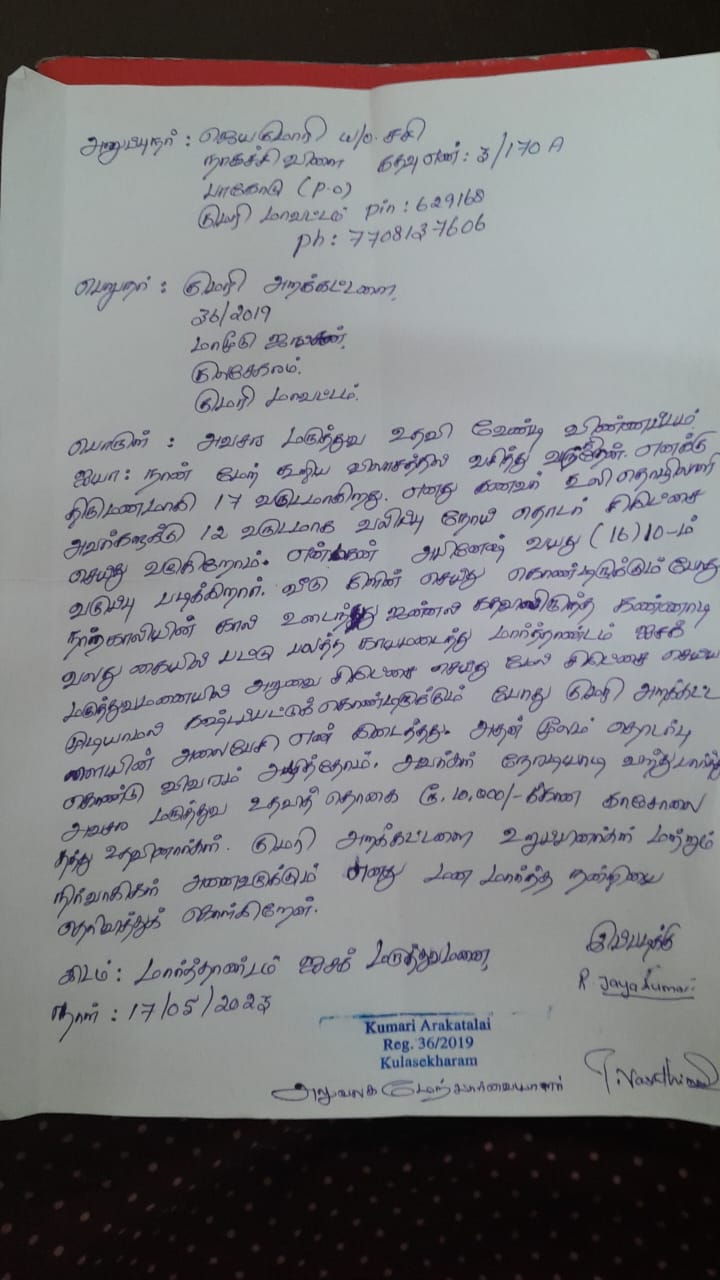 அனுப்புநர் : ஜெயகுமாரி w/o. சசி
நாகச்சி விளை கதவு எண்: 3/170 A
பாகோடு (P.O)
குமரி மாவட்டம் pin : 629168
ph : 7708137606
பெறுநர் : குமரி அறக்கட்டளை,
36/2019
மாமூடு
குலசேகரம்.
குமரி மாவட்டம்.
பொருள் : அவசர மருத்துவ உதவி வேண்டி விண்ணப்பம்
ஐயா: நான் மேற் கூறிய விலாசத்தில் வசித்து வந்தேன். எனக்கு
திருமணமாகி 17 வருடமாகிறது. எனது கணவர் கூலி தொழிலாளி
அவர்களுக்கு 12 வருடமாக வலிப்பு நோய் தொடர் சிகிட்சை
செய்து வருகிறோம். என்மகன் அபினேஷ் வயது (16) 10-ம்
வகுப்பு படிக்கிறார். வீடு கிளீன் செய்து கொண்டிருக்கும் போது
நாற்காலியின் கால் உடைந்து ஜன்னல் கதவிலிருந்த கண்ணாடி
வலது கையில் பட்டு பலத்த காயமடைந்து மார்த்தாண்டம் ஐசக்
மருத்துவமனையில் அறுவை சிகிட்சை செய்து மேல் சிகிட்சை செய்ய
முடியாமல் கஷ்டப்பட்டுக்கொண்டிருக்கும் போது குமரி அறக்கட்ட
ளையின் அலைபேசி எண் கிடைத்தது. அதன் மூலம் தொடர்பு
கொண்டு விவரம் அளித்தோம். அவர்கள் நேரடியாடி வந்து பார்த்து
அவசர மருத்துவ உதவித் தொகை ரூ. 10,000/-க்கான காசோலை
தந்து உதவினார்கள். குமரி அறக்கட்டளை உறுப்பினர்கள் மற்றும்
நிர்வாகிகள் அனைவருக்கும் எனது மன மார்ந்த நன்றியை
தெரிவித்துக் கொள்கிறேன்.
இப்படிக்கு
இடம் : மார்த்தாண்டம் ஐசக் மருத்துவமனை,
R. Jaya Kumari
நாள் : 17/05/2023
Kumari Arakatalai
Reg. 36/2019
Kulasekharam
அலுவலக மேற்பார்வையாளர்